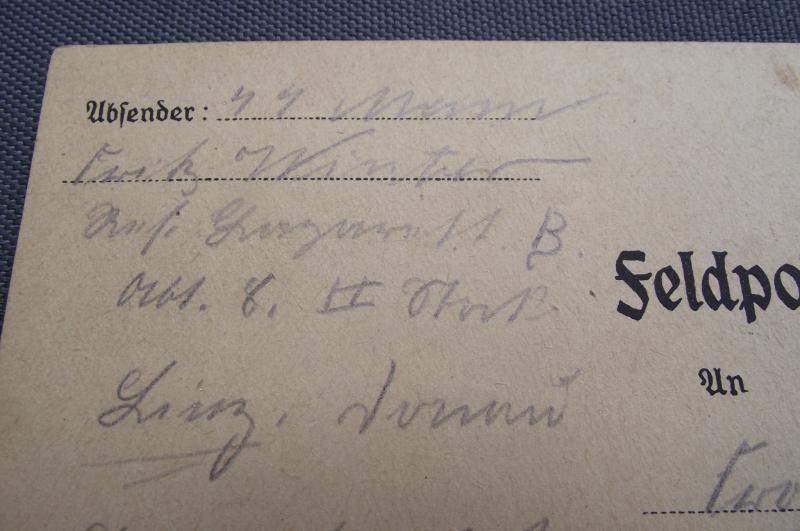 Absender: ϟϟ Mann
Fritz Winter
Res. Lazarett B.
Abt. 8. II Stock
Linz, Donau
Feldpo
An